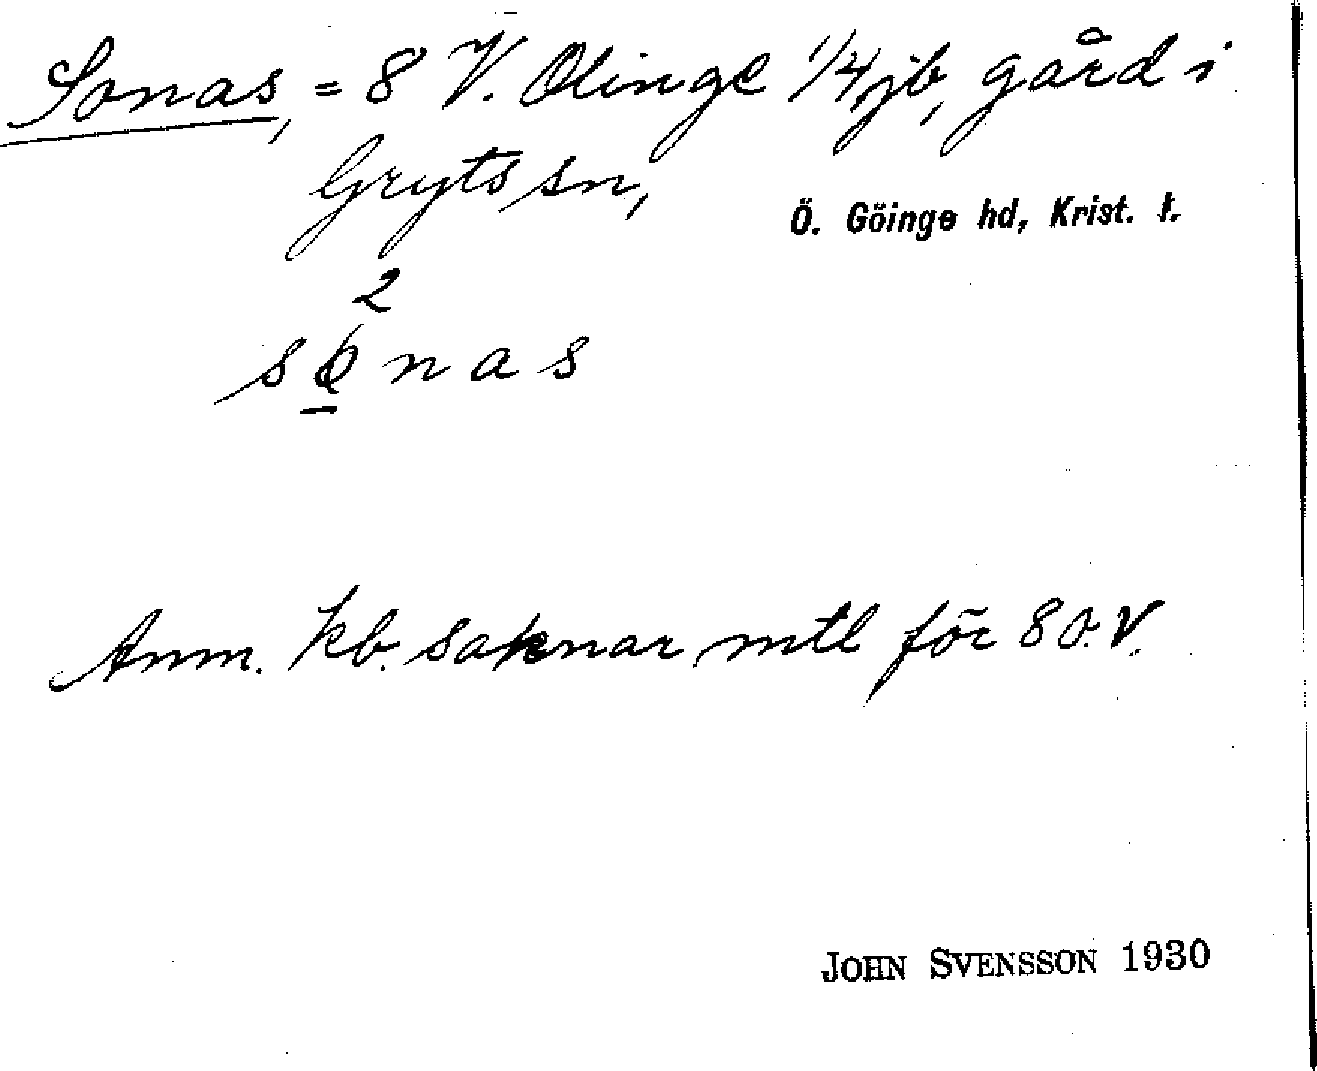 Sonas, = 8 V. Olinge 1/4 jb, gård i
Gryts sn,
Ö. Göinge hd, Krist. l.
2
s o n a s
Anm. kb. saknar mtl för 8 O.V.
JOHN SVENSSON 1930